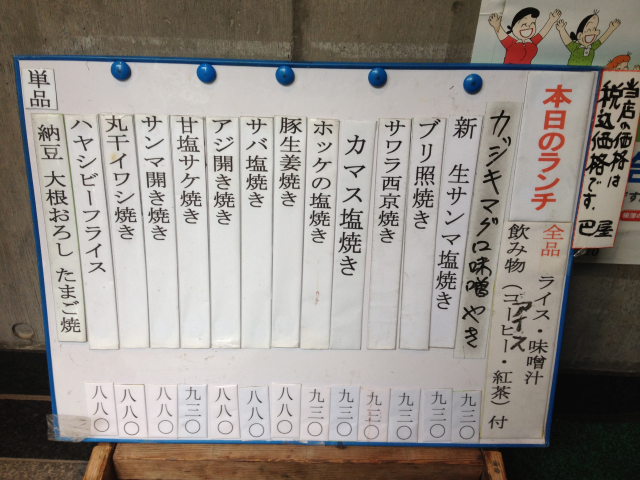 当店の価格は
税込価格です。 巴屋
本日のランチ
全品 ライス・味噌汁
アイス
飲み物（コーヒー・紅茶）付
カジキマグロ味噌やき
新 生サンマ塩焼き
ブリ照焼き
サワラ西京焼き
カマス塩焼き
ホッケの塩焼き
豚生姜焼き
サバ塩焼き
アジ開き焼き
甘塩サケ焼き
サンマ開き焼き
丸干イワシ焼き
ハヤシビーフライス
単品
納豆 大根おろし たまご焼
九三〇
九三〇
九三〇
九三〇
九三〇
九三〇
八八〇
八八〇
八八〇
九三〇
八八〇
八八〇
八八〇